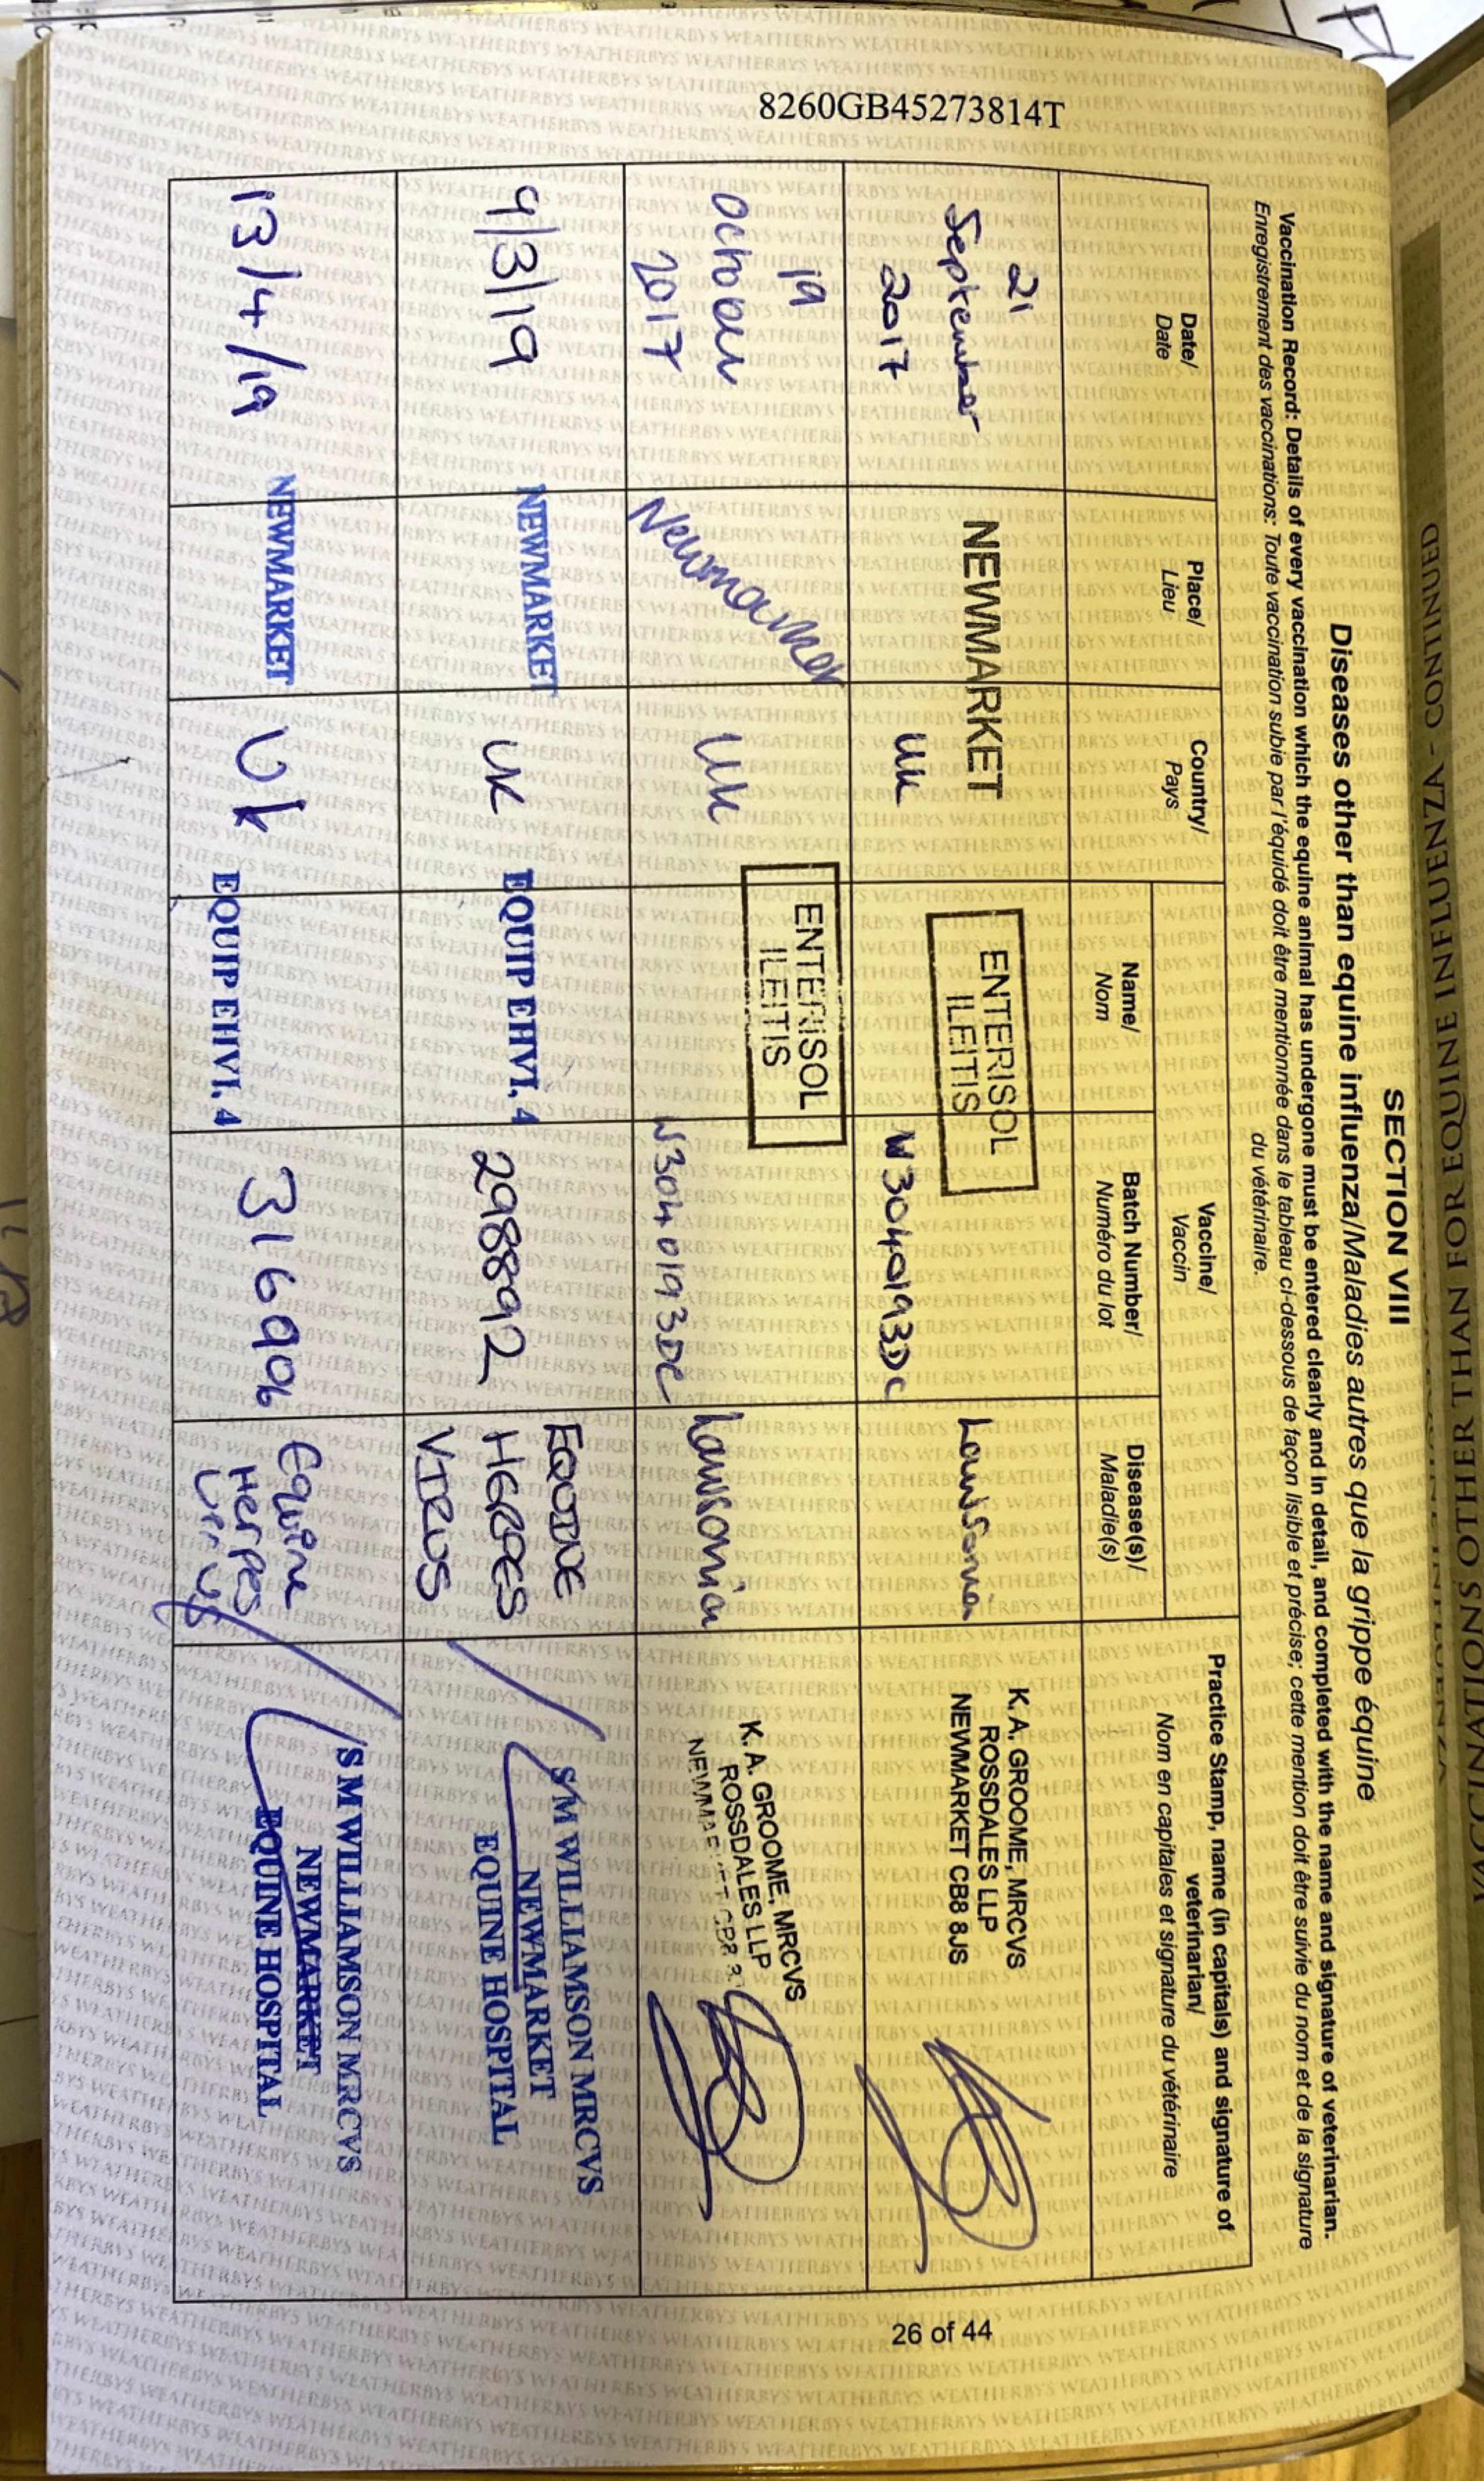 VACCINATIONS OTHER THAN FOR EQUINE INFLUENZA - CONTINUED
SECTION VIII
Diseases other than equine influenza/Maladies autres que la grippe équine
Vaccination Record: Details of every vaccination which the equine animal has undergone must be entered clearly and in detail, and completed with the name and signature of veterinarian.
Enregistrement des vaccinations: Toute vaccination subie par l'équidé doit être mentionnée dans le tableau ci-dessous de façon lisible et précise; cette mention doit être suivie du nom et de la signature
du vétérinaire.
Date/
Date
Place/
Lieu
Country/
Pays
Vaccine/
Vaccin
Name/
Nom
Batch Number/
Numéro du lot
Disease(s)/
Maladie(s)
Practice Stamp, name (in capitals) and signature of
veterinarian/
Nom en capitales et signature du vétérinaire
21
September
2017
NEWMARKET
UK
ENTERISOL
ILEITIS
N3040193DC
Lawsonia
K. A. GROOME, MRCVS
ROSSDALES LLP
NEWMARKET CB8 8JS
19
October
2017
Newmarket
UK
ENTERISOL
ILEITIS
N3040193DC
Lawsonia
K. A. GROOME, MRCVS
ROSSDALES LLP
4/3/19
NEWMARKET
UK
EQUIP EHV1, 4
298892
EQUINE
HERPES
VIRUS
S M WILLIAMSON MRCVS
NEWMARKET
EQUINE HOSPITAL
13/4/19
NEWMARKET
UK
EQUIP EHV1, 4
316996
Equine
Herpes
Virus
S M WILLIAMSON MRCVS
NEWMARKET
EQUINE HOSPITAL
8260GB45273814T
26 of 44